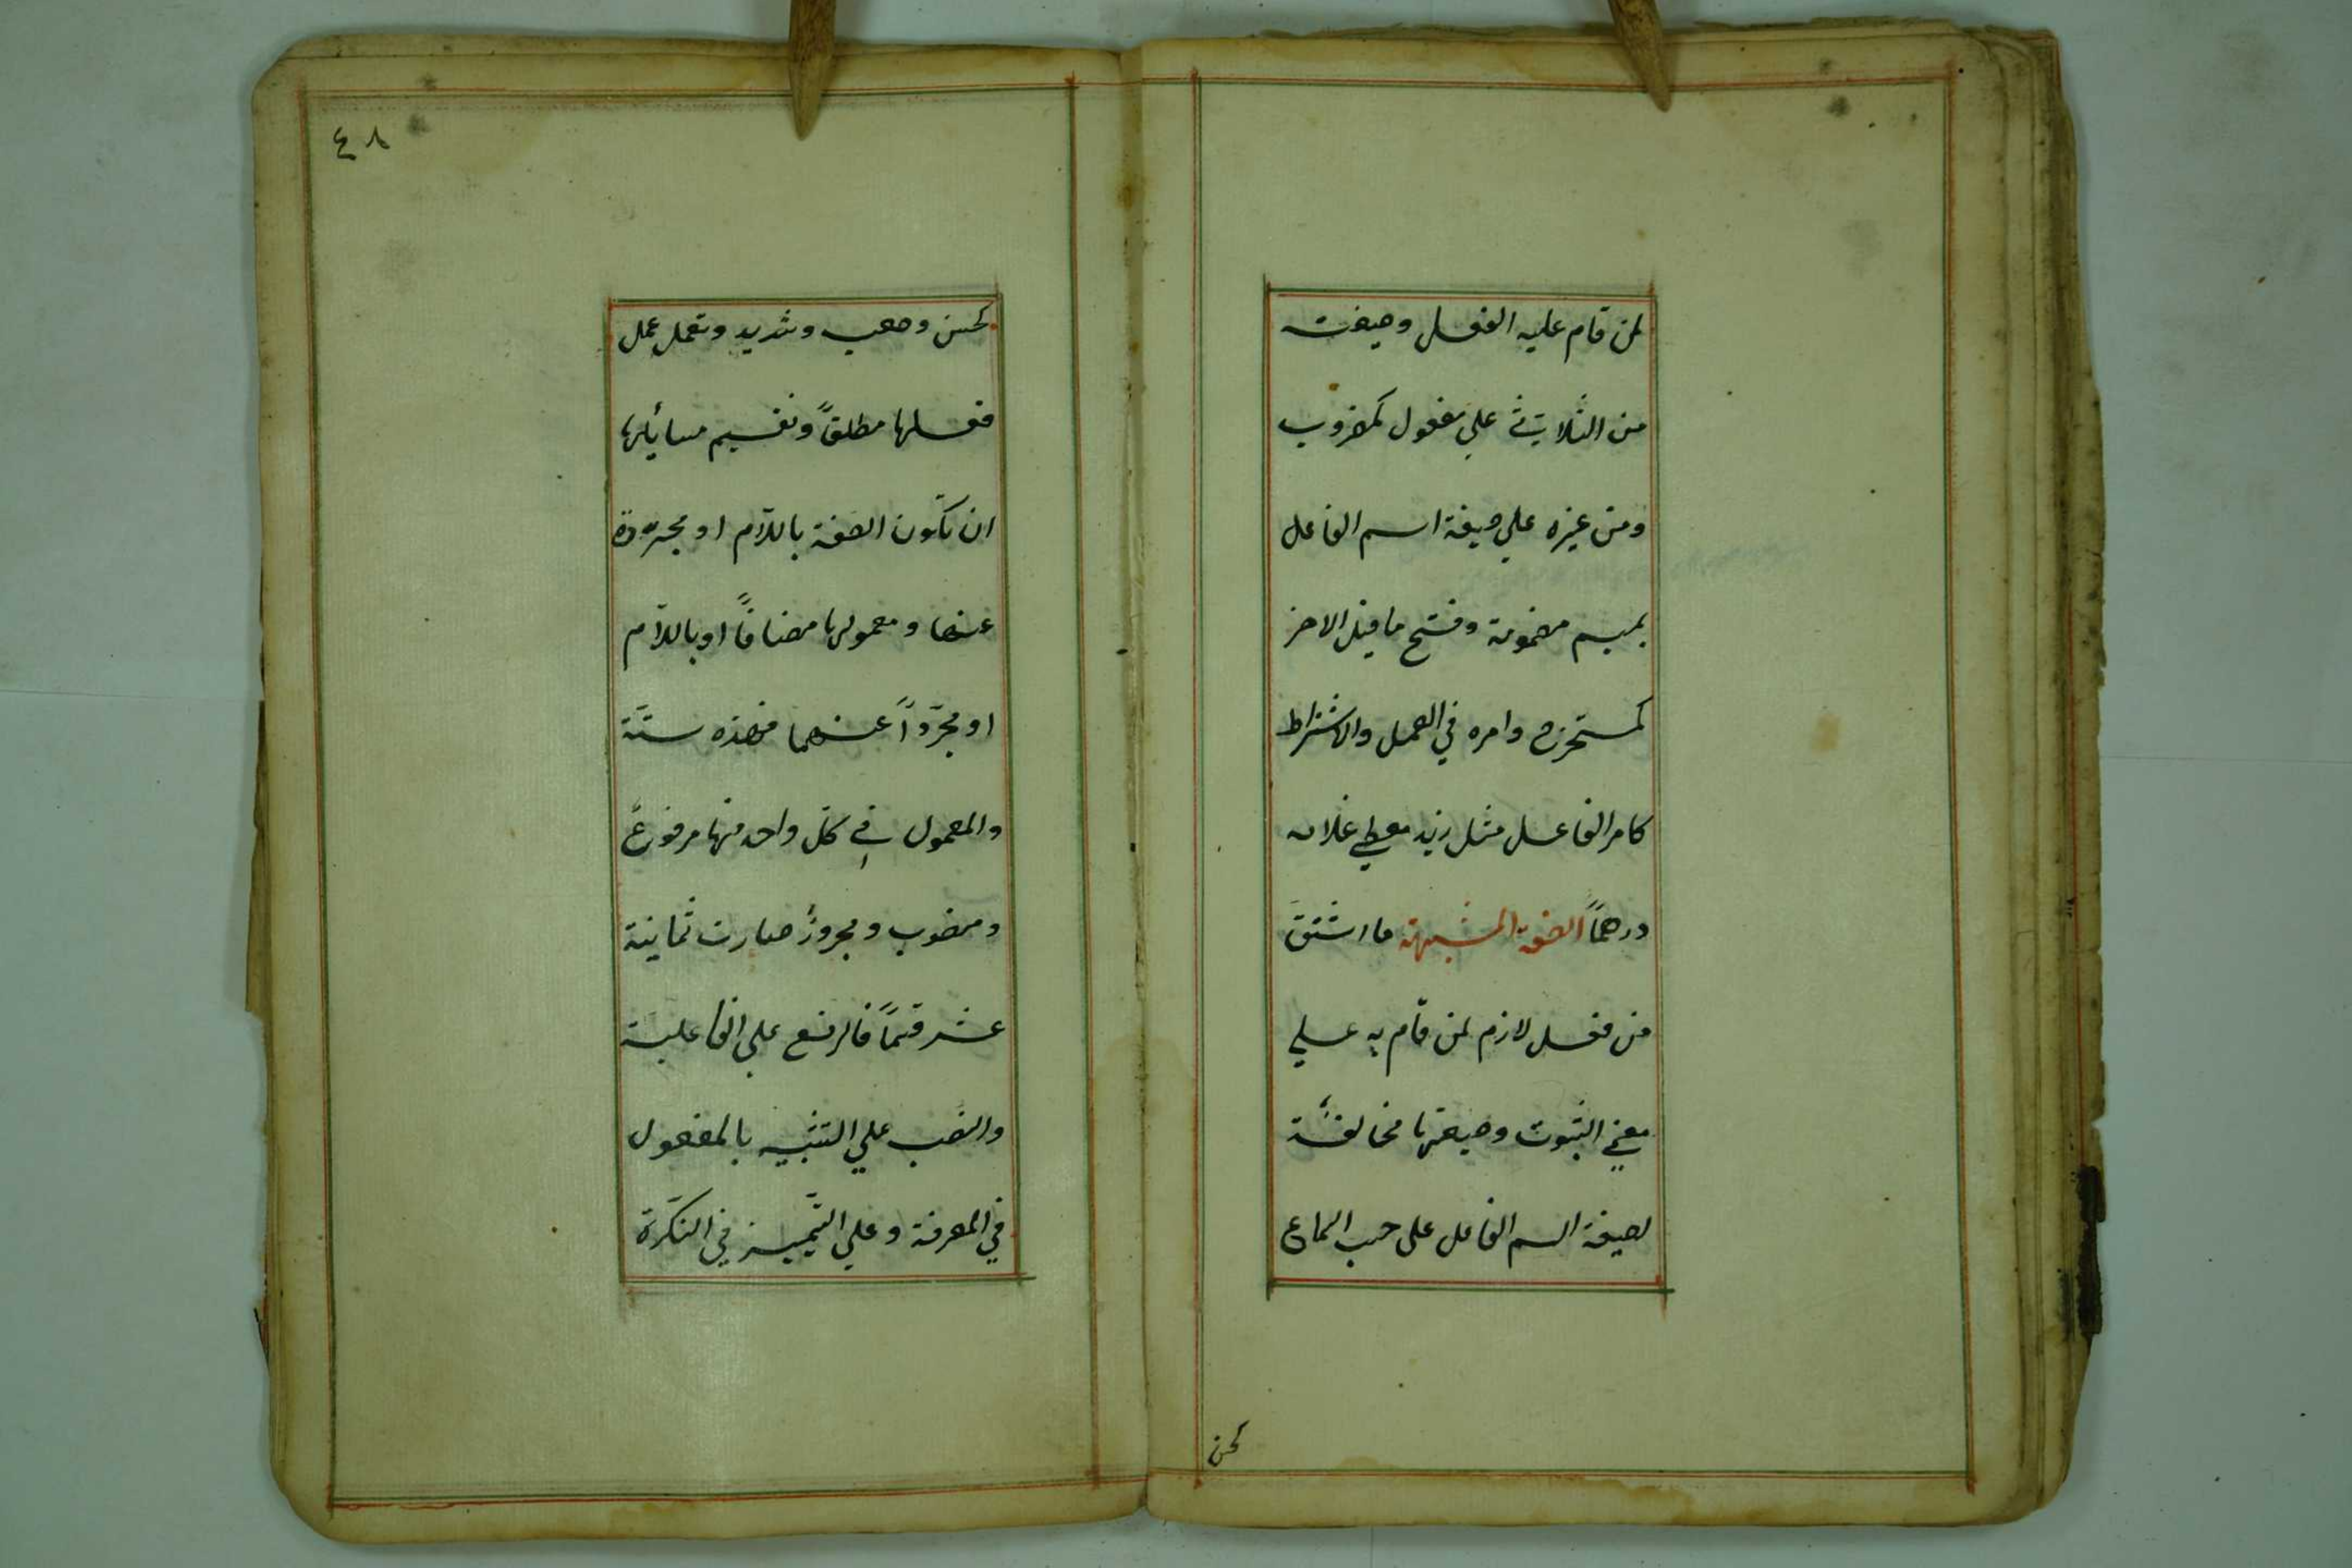 لمن قام عليه الفعل وصيغته
من الثلاثي على مفعول كمضروب
ومن غيره علي صيغة اسم الفاعل
بميم مضمومة وفتح ما قبل الاخر
كمستخرج وامره في العمل والاشتراط
كامر الفاعل مثل زيد معطي غلامه
درهماً الصفة المشبهة ما اشتق
من فعل لازم لمن قام به علي
معني الثبوت وصيغتها مخالفة
لصيغة اسم الفاعل على حسب السماع
كحسن
٤٨
كحسن وصعب وشديد وتعمل عمل
فعلها مطلقاً وتقسيم مسائلها
ان تكون الصفة باللاّم او مجردة
عنها ومعمولها مضافاً او باللاّم
او مجرّداً عنهما فهذه ستّة
والمعمول في كل واحد منها مرفوع
ومنصوب ومجرور صارت ثمانية
عشر قسماً فالرفع علي الفاعلية
والنصب علي التشبيه بالمفعول
في المعرفة وعلي التّمييز في النكرة